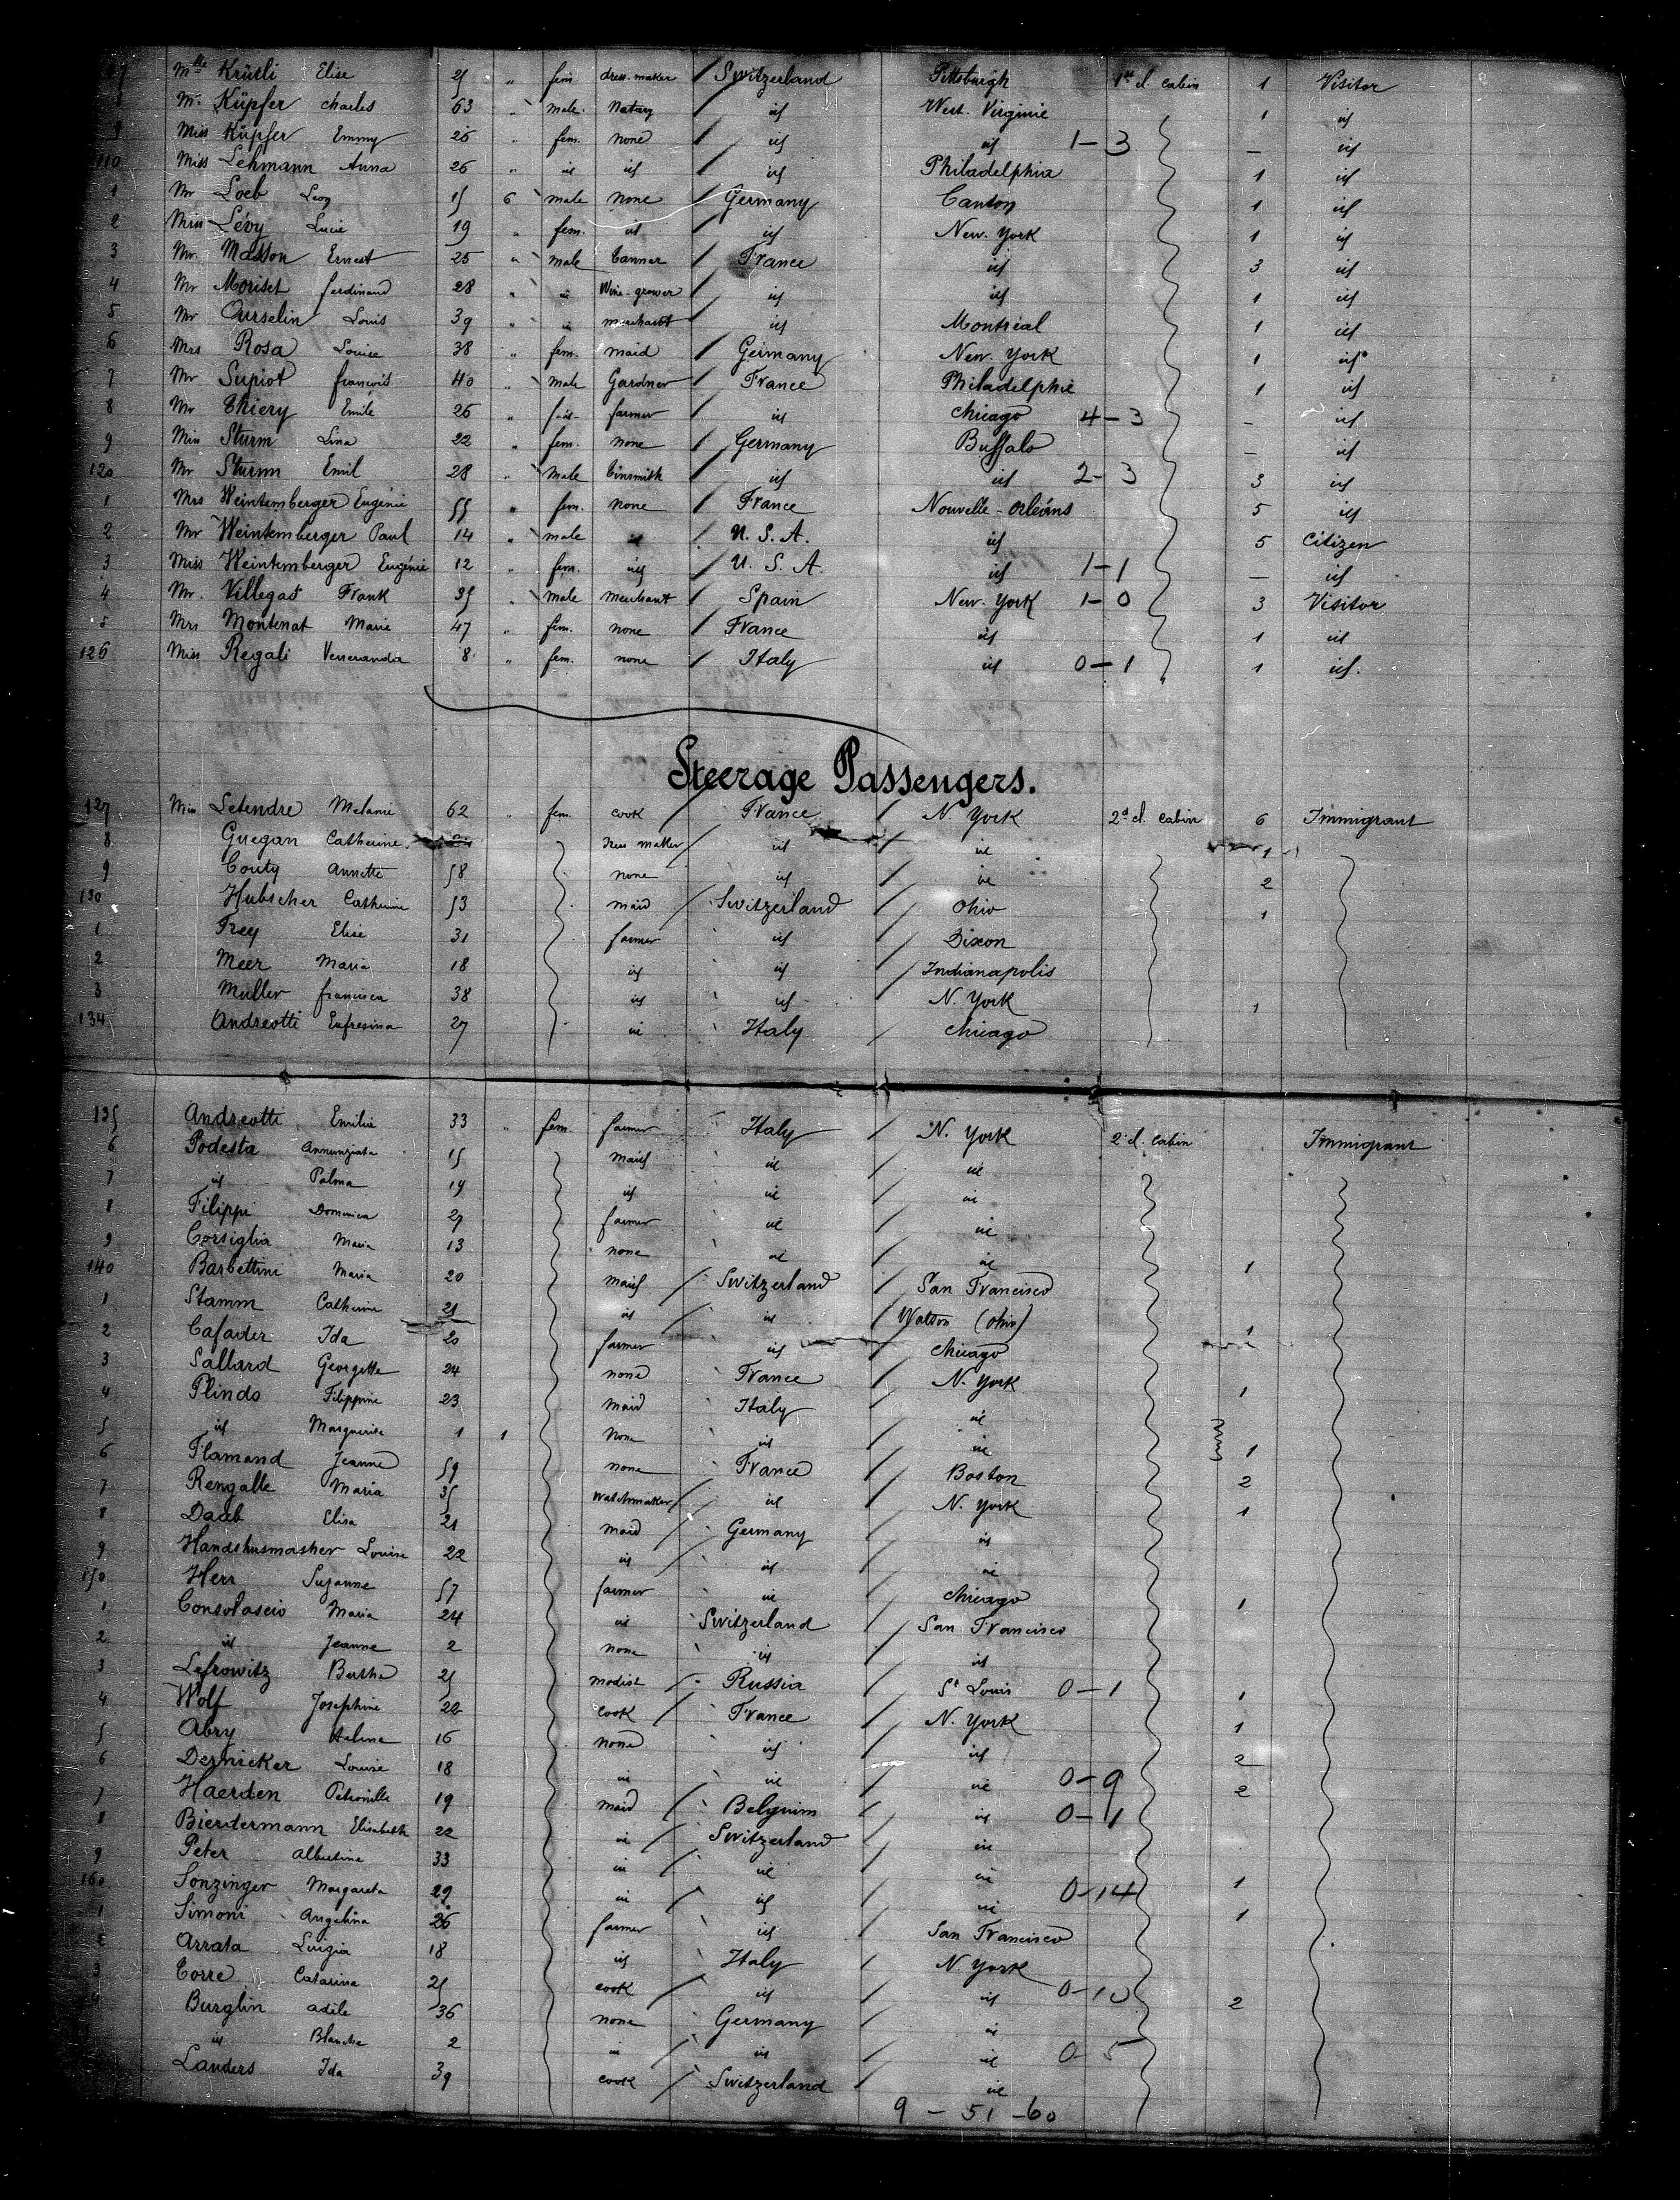 Mlle Krütli Elise 25 " fem. dress-maker Switzerland Pittsburgh 1st cl. cabin 1 Visitor
Mr. Küpfer Charles 63 " male. Notary id West. Virginie 1 id
9 Miss Küpfer Emmy 26 " fem. none id id 1-3 — id
110 Miss Lehmann Anna 26 " id id id Philadelphia 1 id
1 Mr Loeb Leon 15 6 male none Germany Canton 1 id
2 Miss Lévy Lucie 19 " fem. id id New. York 1 id
3 Mr. Masson Ernest 25 " male tanner France id 3 id
4 Mr Moriset ferdinand 28 " id Wine-grower id id 1 id
5 Mr Ourselin Louis 39 " id merchant id Montréal 1 id
6 Mrs Rosa Louise 38 " fem. maid Germany New. York 1 id
7 Mr Supiot françois 40 " male Gardner France Philadelphie 1 id
8 Mr Thiery Emile 26 " id farmer id Chicago 4-3 — id
9 Miss Sturm Lina 22 " fem. none Germany Buffalo — id
120 Mr Sturm Emil 28 " male tinsmith id id 2-3 3 id
1 Mrs Weintemberger Eugénie 55 " fem. none France Nouvelle-Orléans 5 id
2 Mr Weintemberger Paul 14 " male id U. S. A. id 5 Citizen
3 Miss Weintemberger Eugénie 12 " fem. id U. S. A. id 1-1 — id
4 Mr. Villegas Frank 35 " male merchant Spain New. York 1-0 3 Visitor
5 Mrs Montenat Marie 47 " fem. none France id 1 id
126 Miss Regali Veneranda 8 " fem. none Italy id 0-1 1 id.
Steerage Passengers.
127 Miss Letendre Melanie 62 " fem. cook France N. York 2d cl. cabin 6 Immigrant
8 Guegan Catherine dress maker id id 1
9 Couty Annette 58 none id id 2
130 Hubscher Catherine 53 maid Switzerland Ohio 1
1 Frey Elise 31 farmer id Dixon
2 Meer Maria 18 id id Indianapolis
3 Muller francisca 38 id id N. York 1
134 Andreotti Eufresina 27 id Italy Chicago
135 Andreotti Emilie 33 " fem. farmer Italy N. York 2 cl. cabin Immigrant
6 Podesta Annunziata 15 maid id id
7 id Palma 19 id id id
8 Filippi Domenica 27 farmer id id
9 Corsiglia Maria 13 none id id 1
140 Barbettini Maria 20 maid Switzerland San Francisco
1 Stamm Catherine 21 id id Watson (Ohio) 1
2 Cafader Ida 20 farmer id Chicago
3 Sallard Georgette 24 none France N. York 1
4 Plindo Filippine 23 maid Italy id
5 id Marguerite 1 1 none id id 1
6 Flamand Jeanne 59 none France Boston 2
7 Rengalle Maria 35 Watchmaker id N. York 1
8 Daub Elisa 21 maid Germany id
9 Handshusmasher Louise 22 id id id
150 Herr Suzanne 57 farmer id Chicago 1
1 Consolascio Maria 24 id Switzerland San Francisco
2 id Jeanne 2 none id id
3 Lefrowitz Bertha 25 modist Russia St Louis 0-1 1
4 Wolf Josephine 22 cook France N. York 1
5 Abry Helene 16 none id id 2
6 Deznicker Louise 18 id id id 0-9 2
7 Haerden Petronille 19 maid Belgium id 0-1
8 Bierdermann Elisabeth 22 id Switzerland id
9 Peter Albertine 33 id id id 1
160 Sonzinger Margareta 29 id id id 0-14 1
1 Simoni Angelina 26 farmer id San Francisco
2 Arrata Luigia 18 id Italy N. York
3 Torre Catarina 25 cook id id 0-10 2
4 Burglin Adele 36 none Germany id
id Blanche 2 id id id 0-5
Landers Ida 39 cook Switzerland id
9 - 51 - 60